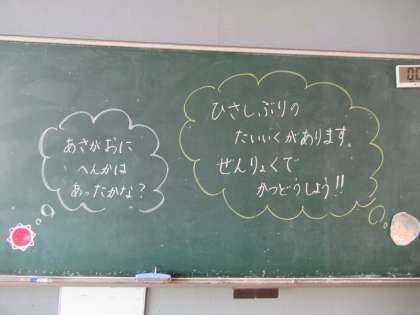 あさがおに
へんかは
あったかな?
ひさしぶりの
たいいくがあります。
ぜんりょくで
かつどうしよう!!